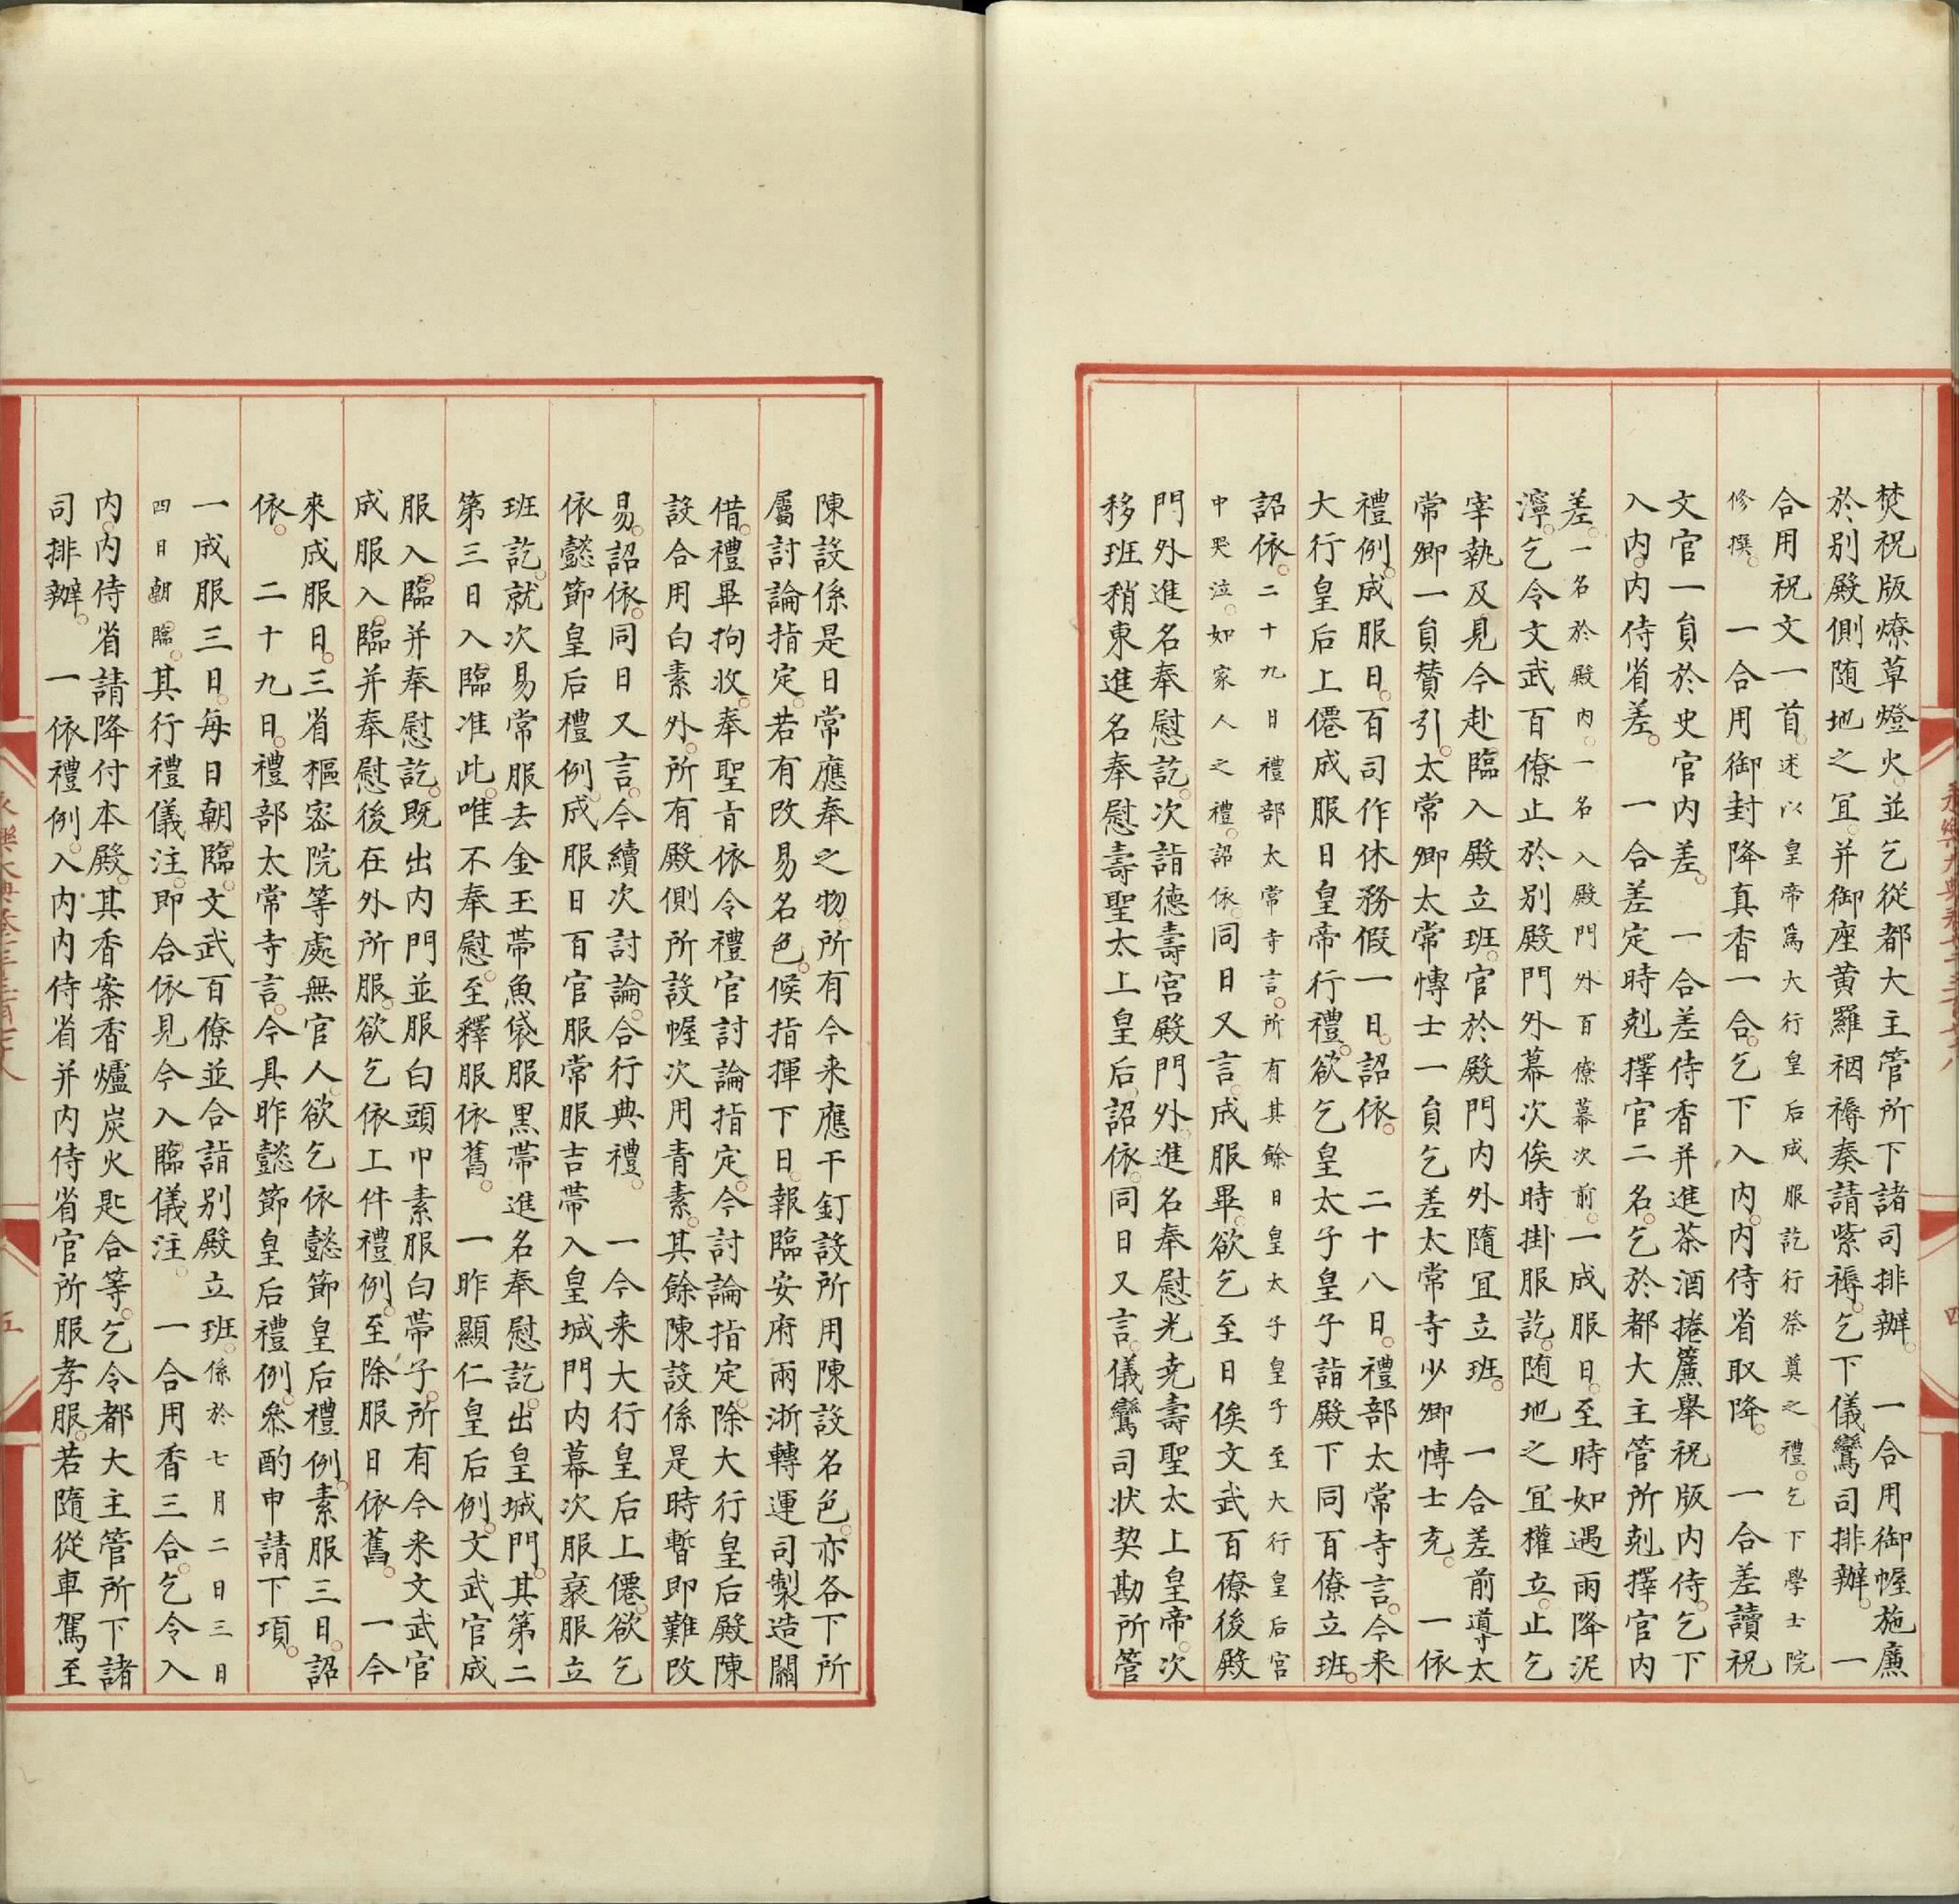 焚祝版燎草燈火並乞從都大主管所下諸司排辦。　一合用御幄施簾
於別殿側随地之冝并御座黄羅裀褥奏請紫褥。乞下儀鸞司排辦。　一
合用祝文一首。述以皇帝為大行皇后成服訖行祭奠之禮。乞下學士院
修撰。　一合用御封降真香一合。乞下入内。内侍省取降。　一合差讀祝
文官一員於史官内差。　一合差侍香并進茶酒捲簾舉祝版内侍。乞下
入内。内侍省差。　一合差定時剋擇官二名。乞於都大主管所剋擇官内
差。一名於殿内。一名入殿門外百僚幕次前。一成服日。至時如遇雨降泥
濘。乞令文武百僚止於別殿門外幕次俟時掛服訖。随地之冝權立。止乞
宰執及見今赴臨入殿立班。官於殿門内外隨冝立班。　一合差前導太
常卿一員贊引。太常卿太常博士一員乞差太常寺少卿博士充。　一依
禮例。成服日。百司作休務假一日。詔依。　二十八日。禮部太常寺言。今来
大行皇后上僊成服日皇帝行禮。欲乞皇太子皇子詣殿下同百僚立班。
詔依。二十九日禮部太常寺言。所有其餘日皇太子皇子至大行皇后宮
中哭泣。如家人之禮。詔依。同日又言。成服畢。欲乞至日俟文武百僚後殿
門外進名奉慰訖。次詣德壽宮殿門外。進名奉慰光尭壽聖太上皇帝。次
移班稍東進名奉慰壽聖太上皇后。詔依。同日又言。儀鸞司状契勘所管
陳設係是日常應奉之物。所有今来應干釘設所用陳設名色。亦各下所
屬討論指定。若有改易名色。候指揮下日。報臨安府兩浙轉運司製造關
借。禮畢拘收。奉聖旨依令禮官討論指定。今討論指定。除大行皇后殿陳
設合用白素外。所有殿側所設幄次用青素。其餘陳設係是時暫即難改
易。詔依。同日又言。今續次討論。合行典禮。　一今来大行皇后上僊。欲乞
依懿節皇后禮例。成服日百官服常服吉帶入皇城門内幕次服衰服立
班訖。就次易常服去金玉帶魚袋服黑帶進名奉慰訖。出皇城門。其第二
第三日入臨准此。唯不奉慰。至釋服依舊。　一昨顯仁皇后例。文武官成
服入臨并奉慰訖。既出内門並服白頭巾素服白帶子。所有今来文武官
成服入臨并奉慰後在外所服。欲乞依上件禮例。至除服日依舊。　一今
來成服日。三省樞宻院等處無官人。欲乞依懿節皇后禮例。素服三日。詔
依。　二十九日。禮部太常寺言。今具昨懿節皇后禮例。叅酌申請下項。
一成服三日。每日朝臨。文武百僚並合詣別殿立班。係於七月二日三日
四日朝臨。其行禮儀注。即合依見今入臨儀注。　一合用香三合。乞令入
内。内侍省請降付本殿。其香案香爐炭火匙合等。乞令都大主管所下諸
司排辦。　一依禮例。入内内侍省并内侍省官所服孝服。若隨從車駕至